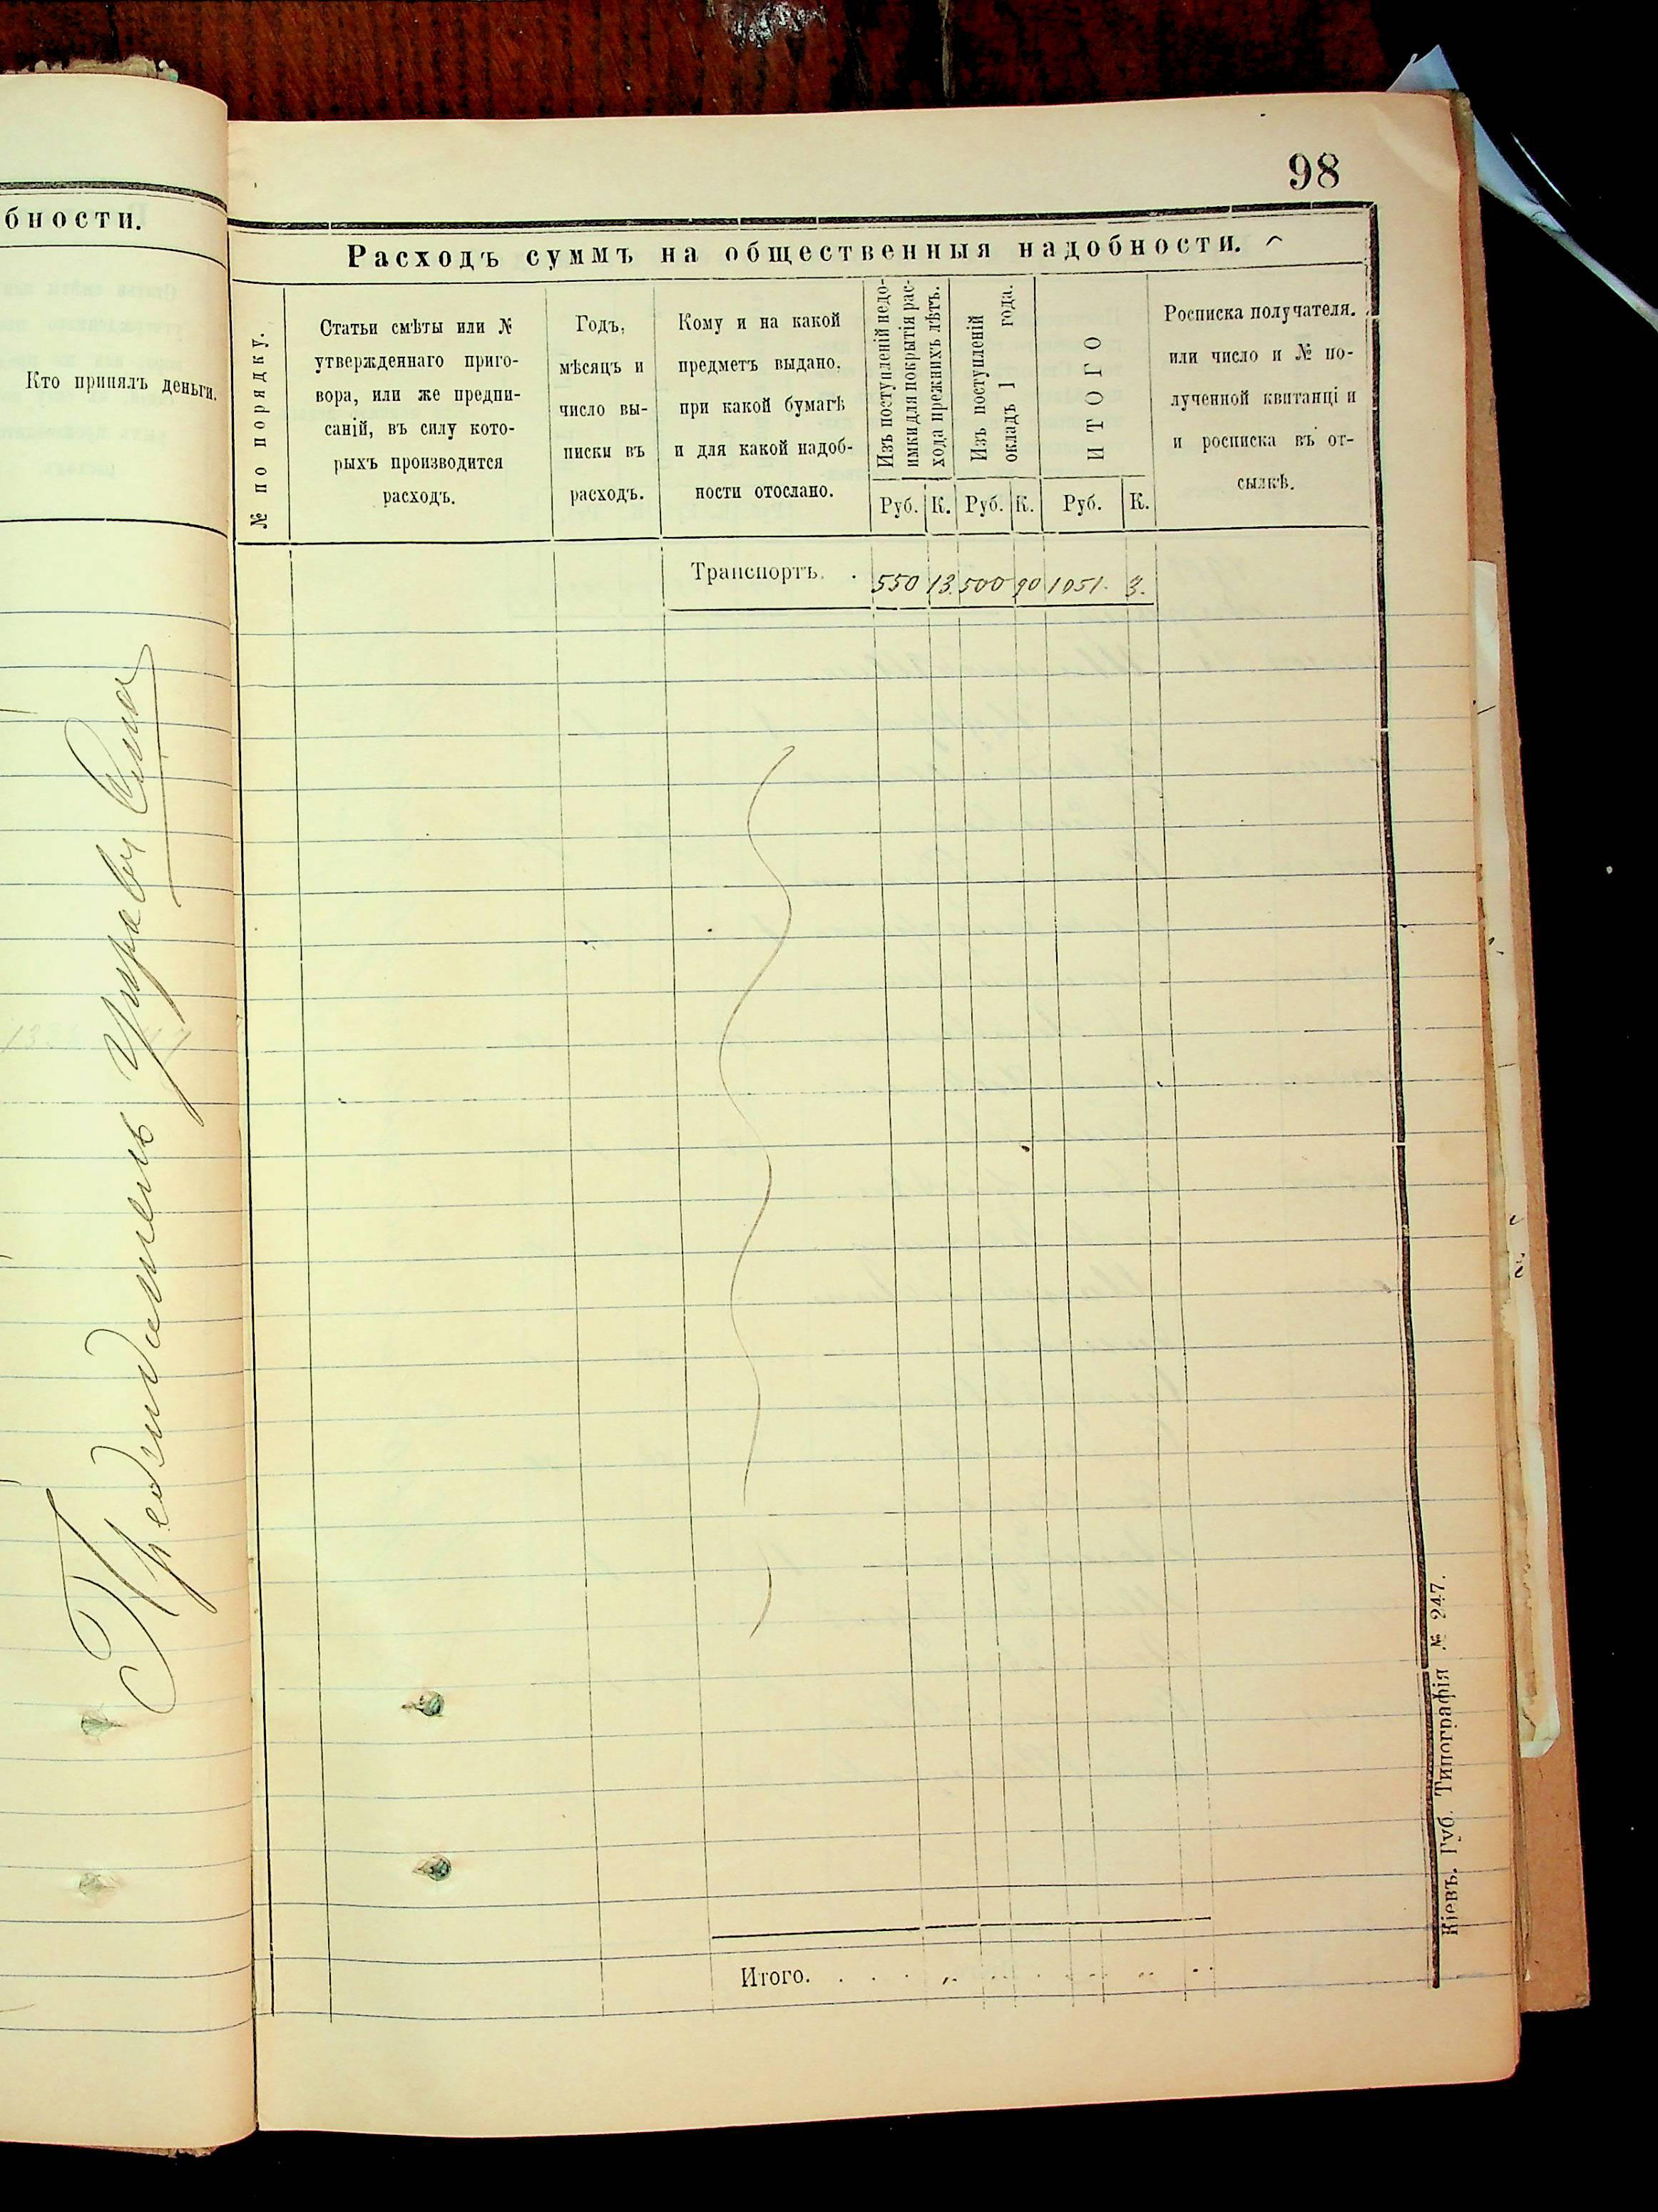 бности.
Кто принялъ деньги.
98
Расходъ суммъ на общественныя надобности.
№ по порядку.
Статьи смѣты или №
утвержденнаго приго-
вора, или же предпи-
саній, въ силу кото-
рыхъ производится
расходъ.
Годъ,
мѣсяцъ и
число вы-
писки въ
расходъ.
Кому и на какой
предметъ выдано,
при какой бумагѣ
и для какой надоб-
ности отослано.
Изъ поступленій недо-
имки для покрытія рас-
хода прежнихъ лѣтъ.
Изъ поступленій
окладъ 1 года.
ИТОГО
Росписка получателя.
или число и № по-
лученной квитанці и
и росписка въ от-
сылкѣ.
Руб. К. Руб. К. Руб. К.
Транспортъ. . 550 13. 500 90 1051. 3.
Итого. . . . . . . . .
Кіевъ. Губ. Типографія № 247.